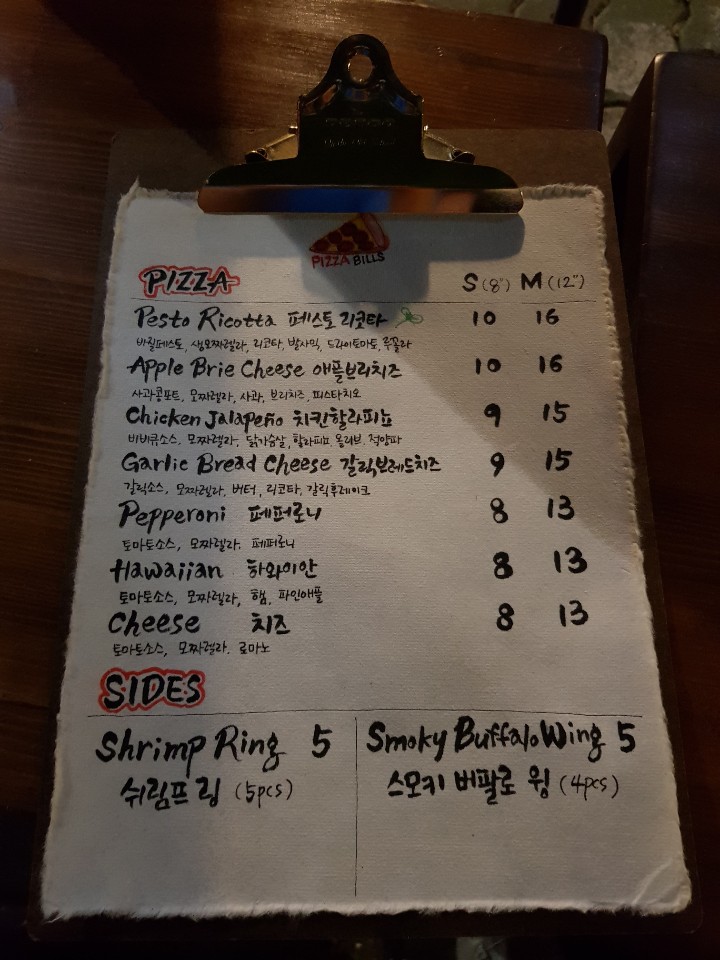 PIZZA BILLS
PIZZA S (8") M (12")
Pesto Ricotta 페스토 리콧타 10 16
바질페스토, 생모짜렐라, 리코타, 발사믹, 드라이토마토, 루꼴라
Apple Brie Cheese 애플브리치즈 10 16
사과콩포트, 모짜렐라, 사과, 브리치즈, 피스타치오
Chicken Jalapeño 치킨할라피뇨 9 15
비비큐소스, 모짜렐라, 닭가슴살, 할라피뇨, 올리브, 적양파
Garlic Bread Cheese 갈릭브레드치즈 9 15
갈릭소스, 모짜렐라, 버터, 리코타, 갈릭후레이크
Pepperoni 페퍼로니 8 13
토마토소스, 모짜렐라, 페퍼로니
Hawaiian 하와이안 8 13
토마토소스, 모짜렐라, 햄, 파인애플
Cheese 치즈 8 13
토마토소스, 모짜렐라, 로마노
SIDES
Shrimp Ring 5
쉬림프 링 (5pcs)
Smoky Buffalo Wing 5
스모키 버팔로 윙 (4pcs)